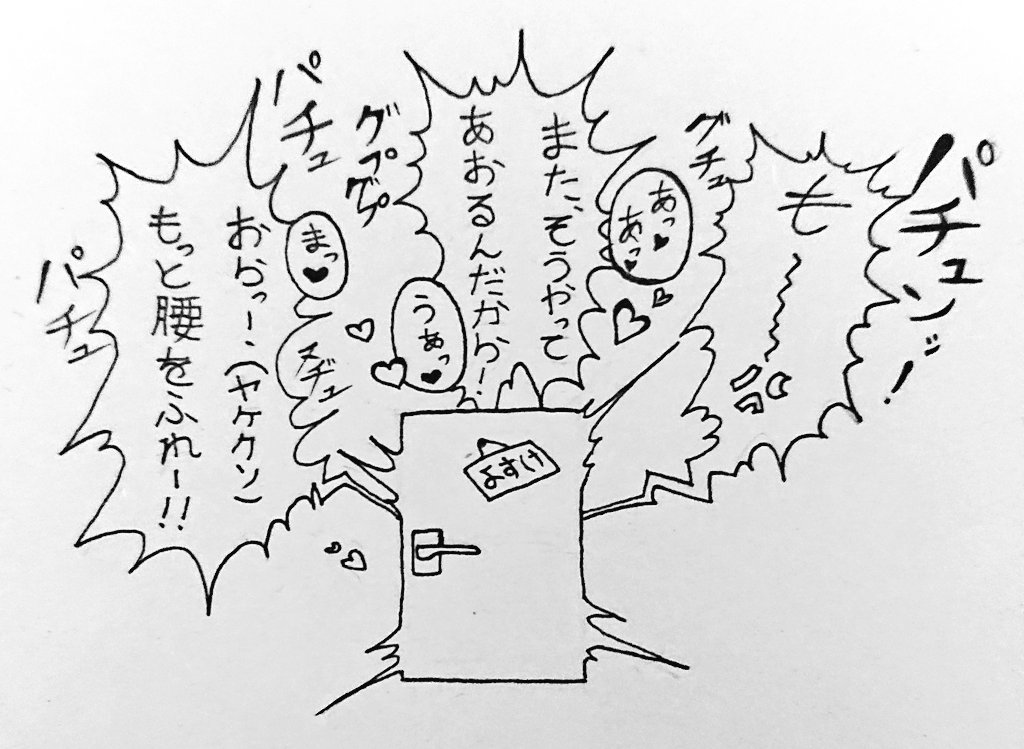 パチュンッ!
も〜
グチュ
あっ♥
あっ♥
また、そうやって
あおるんだから!
うぁっ♥
グプグプ
パチュ
まっ♥
ヌヂュ
おらっー、(ヤケクソ)
もっと腰をふれー!!
パチュ
よすけ